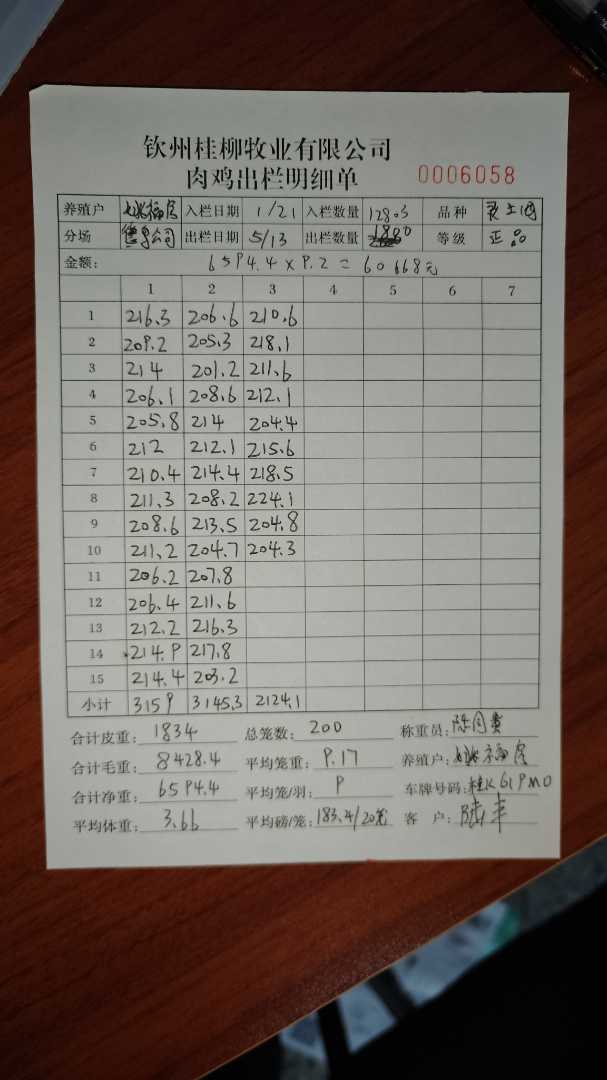 钦州桂柳牧业有限公司
肉鸡出栏明细单 0006058
养殖户 姚福房 入栏日期 1/21 入栏数量 12803 品种
分场 公司 出栏日期 5/13 出栏数量 1800 等级 正品
金额: 6594.4×9.2=60668元
1 2 3 4 5 6 7
1 216.3 206.6 210.6
2 209.2 205.3 218.1
3 214 201.2 211.6
4 206.1 208.6 212.1
5 205.8 214 204.4
6 212 212.1 215.6
7 210.4 214.4 218.5
8 211.3 208.2 224.1
9 208.6 213.5 204.8
10 211.2 204.7 204.3
11 206.2 207.8
12 206.4 211.6
13 212.2 216.3
14 214.9 217.8
15 214.4 203.2
小计 3159 3145.3 2124.1
合计皮重: 1834 总笼数: 200 称重员: 陈同贵
合计毛重: 8428.4 平均笼重: 9.17 养殖户: 姚福房
合计净重: 6594.4 平均笼/羽: 9 车牌号码: 桂K619M0
平均体重: 3.66 平均磅/笼: 183.4/20笼 客户: 陆丰